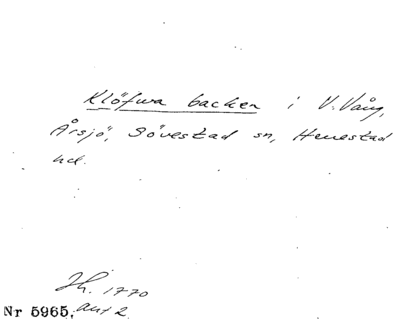 Klöfwa backen i V. Vång,
Årsjö, Sövestad sn, Herrestad
hd.
Jh. 1770
Nr 5965, akt 2